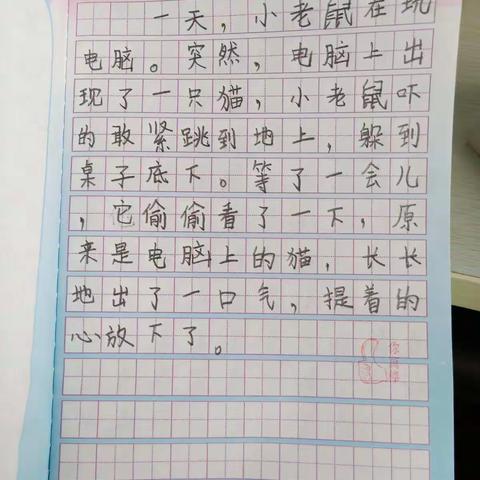 一天，小老鼠在玩
电脑。突然，电脑上出
现了一只猫，小老鼠吓
的敢紧跳到地上，躲到
桌子底下。等了一会儿
，它偷偷看了一下，原
来是电脑上的猫，长长
地出了一口气，提着的
心放下了。
你真棒